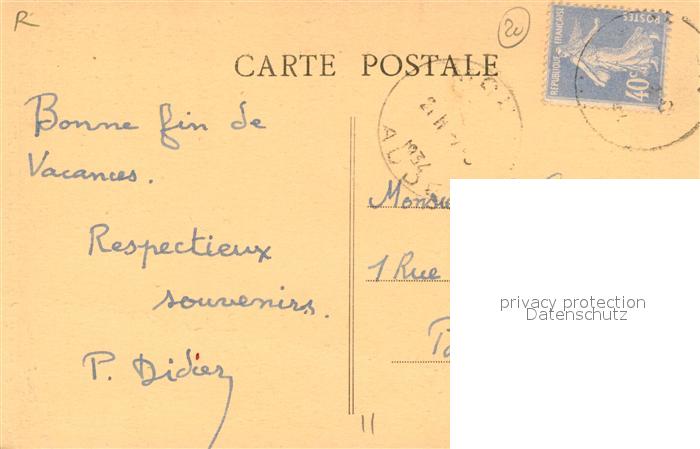 R
20
CARTE POSTALE
RÉPUBLIQUE FRANÇAISE
POSTES
40c
1934
AUDE
Bonne fin de
Vacances.
Respectieux
souvenirs.
P. Didier
1 Rue
11
privacy protection
Datenschutz